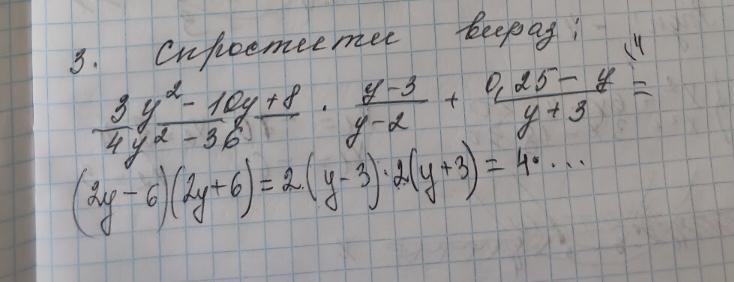 3. Спростити вираз:
(3y² - 10y + 8)/(4y² - 36) · (y - 3)/(y - 2) + (0,25 - y)/(y + 3) =
(2y - 6)(2y + 6) = 2·(y - 3)·2(y + 3) = 4· ...